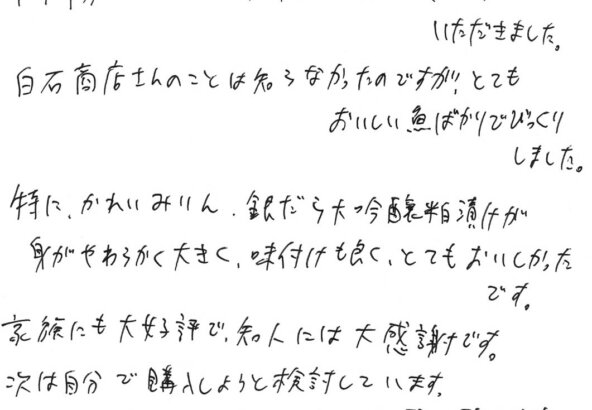 いただきました。
白石商店さんのことは知らなかったのですが、とても
おいしい魚ばかりでびっくり
しました。
特に、かれいみりん、銀だら大吟醸粕漬けが
身がやわらかく大きく、味付けも良く、とてもおいしかった
です。
家族にも大好評で、知人には大感謝です。
次は自分で購入しようと検討しています。